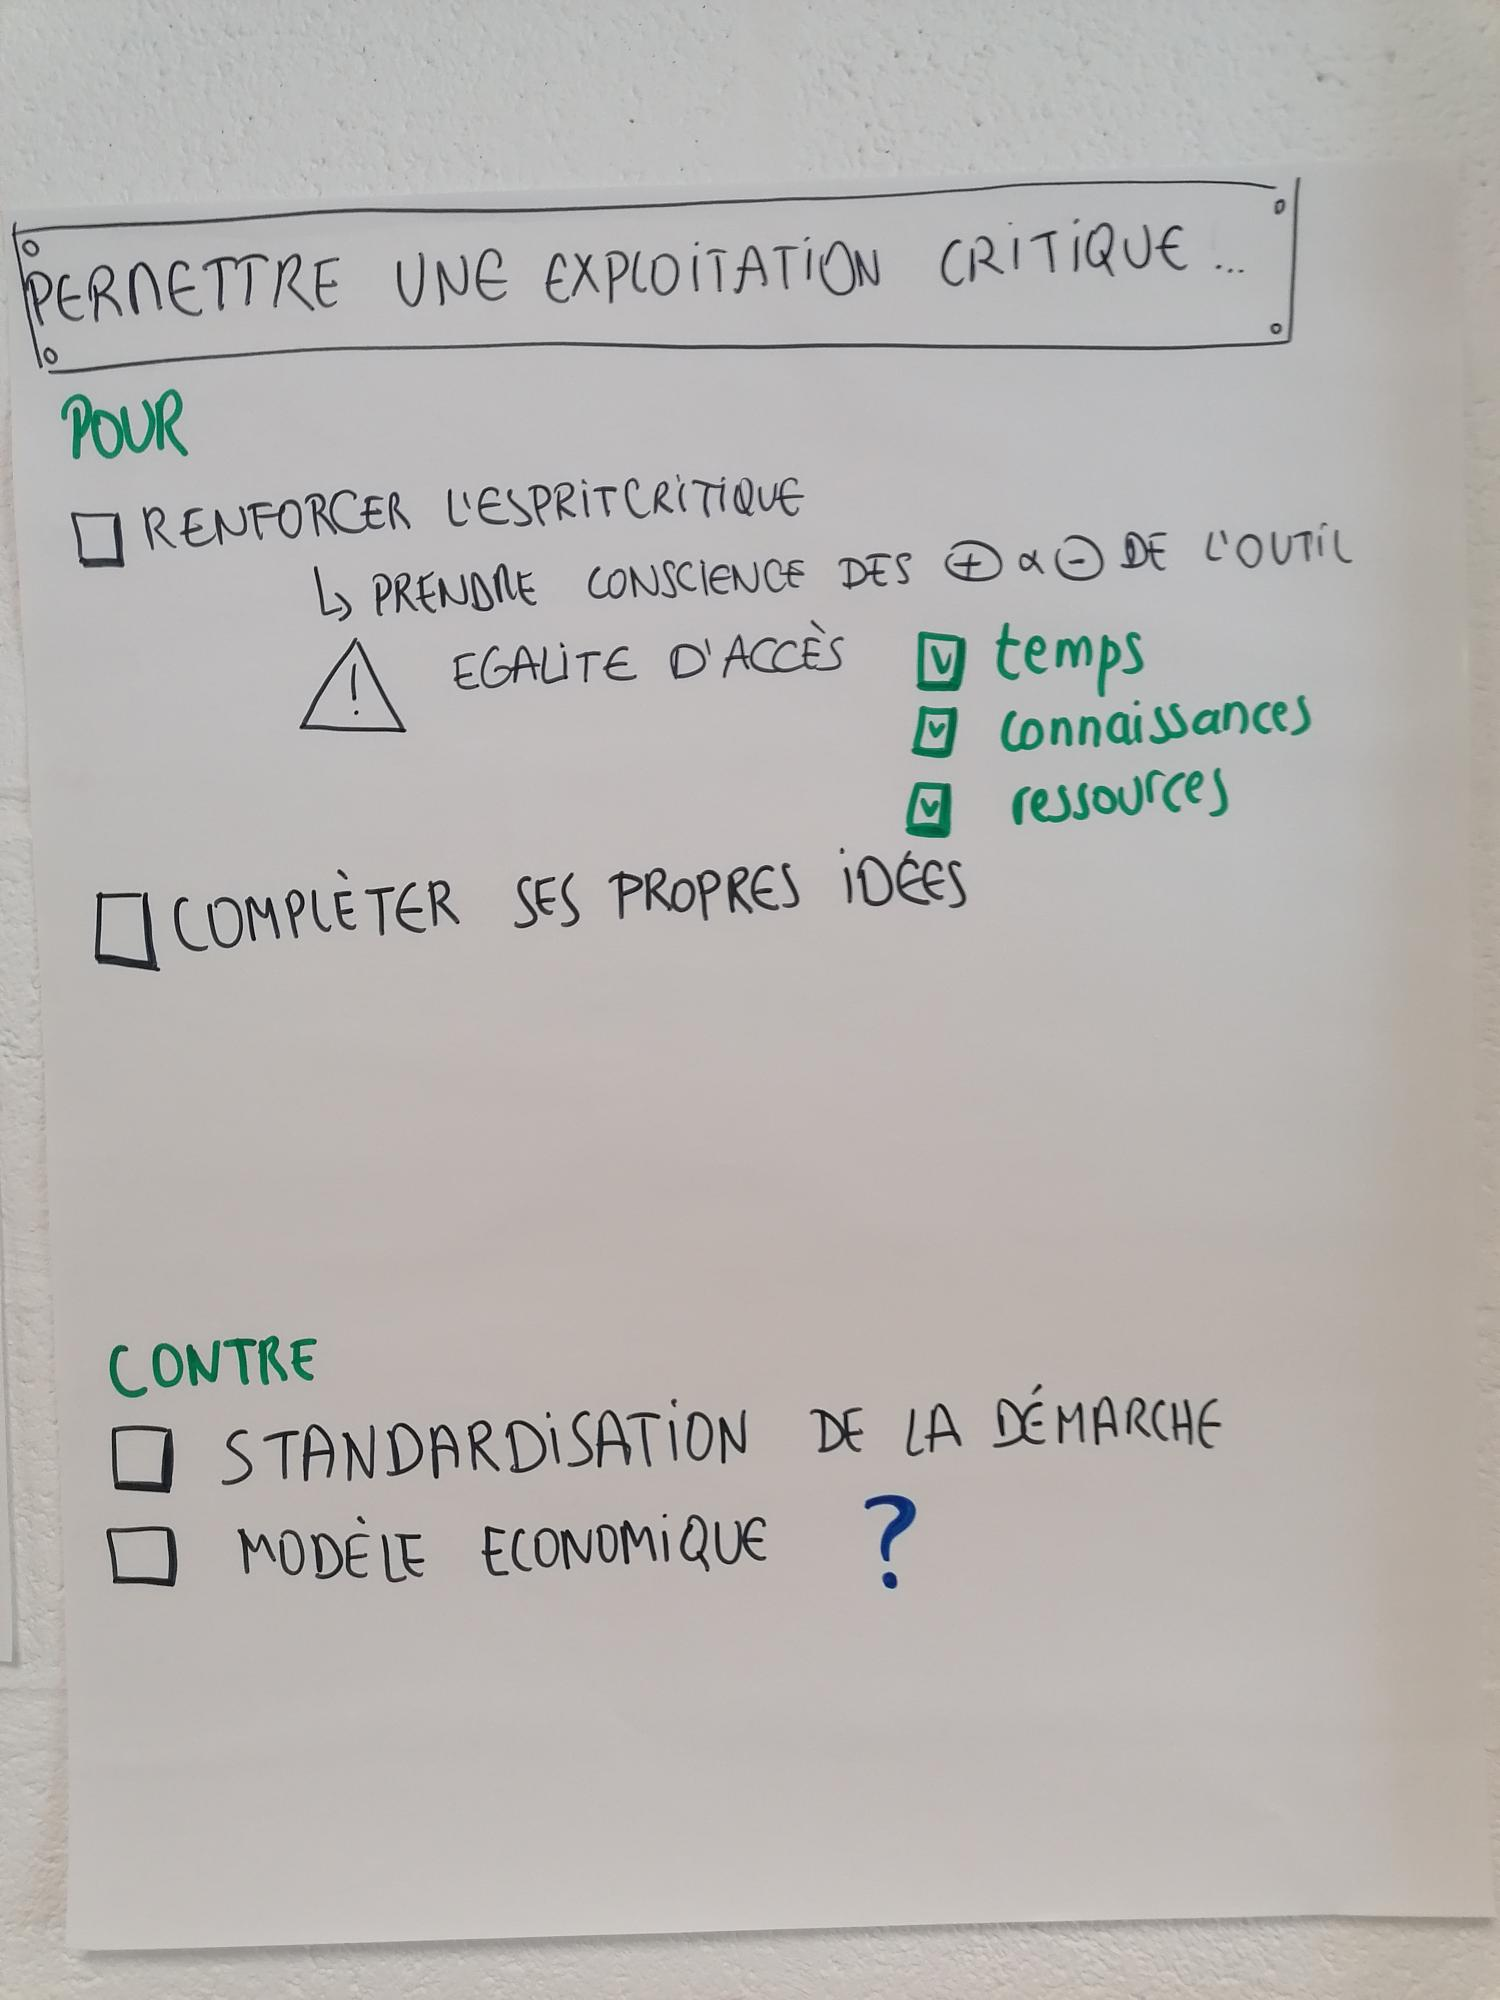 PERMETTRE UNE EXPLOITATION CRITIQUE...
POUR
RENFORCER L'ESPRIT CRITIQUE
↳ PRENDRE CONSCIENCE DES ⊕ & ⊖ DE L'OUTIL
! EGALITE D'ACCÈS temps
connaissances
ressources
COMPLÈTER SES PROPRES IDÉES
CONTRE
STANDARDISATION DE LA DÉMARCHE
MODÈLE ECONOMIQUE ?